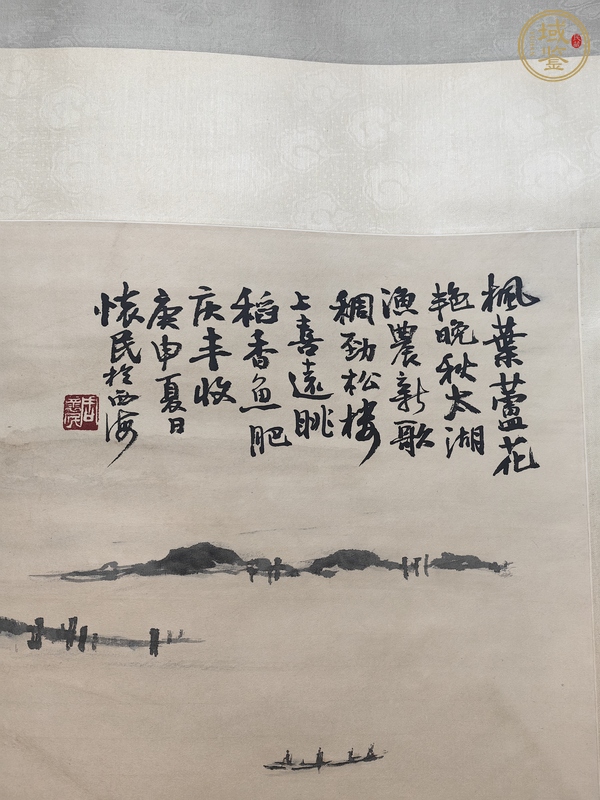 枫葉蘆花
艳晚秋太湖
漁農新歌
稠勁松楼
上喜遠眺
稻香鱼肥
庆丰收
庚申夏日
懷民於西海
域鉴